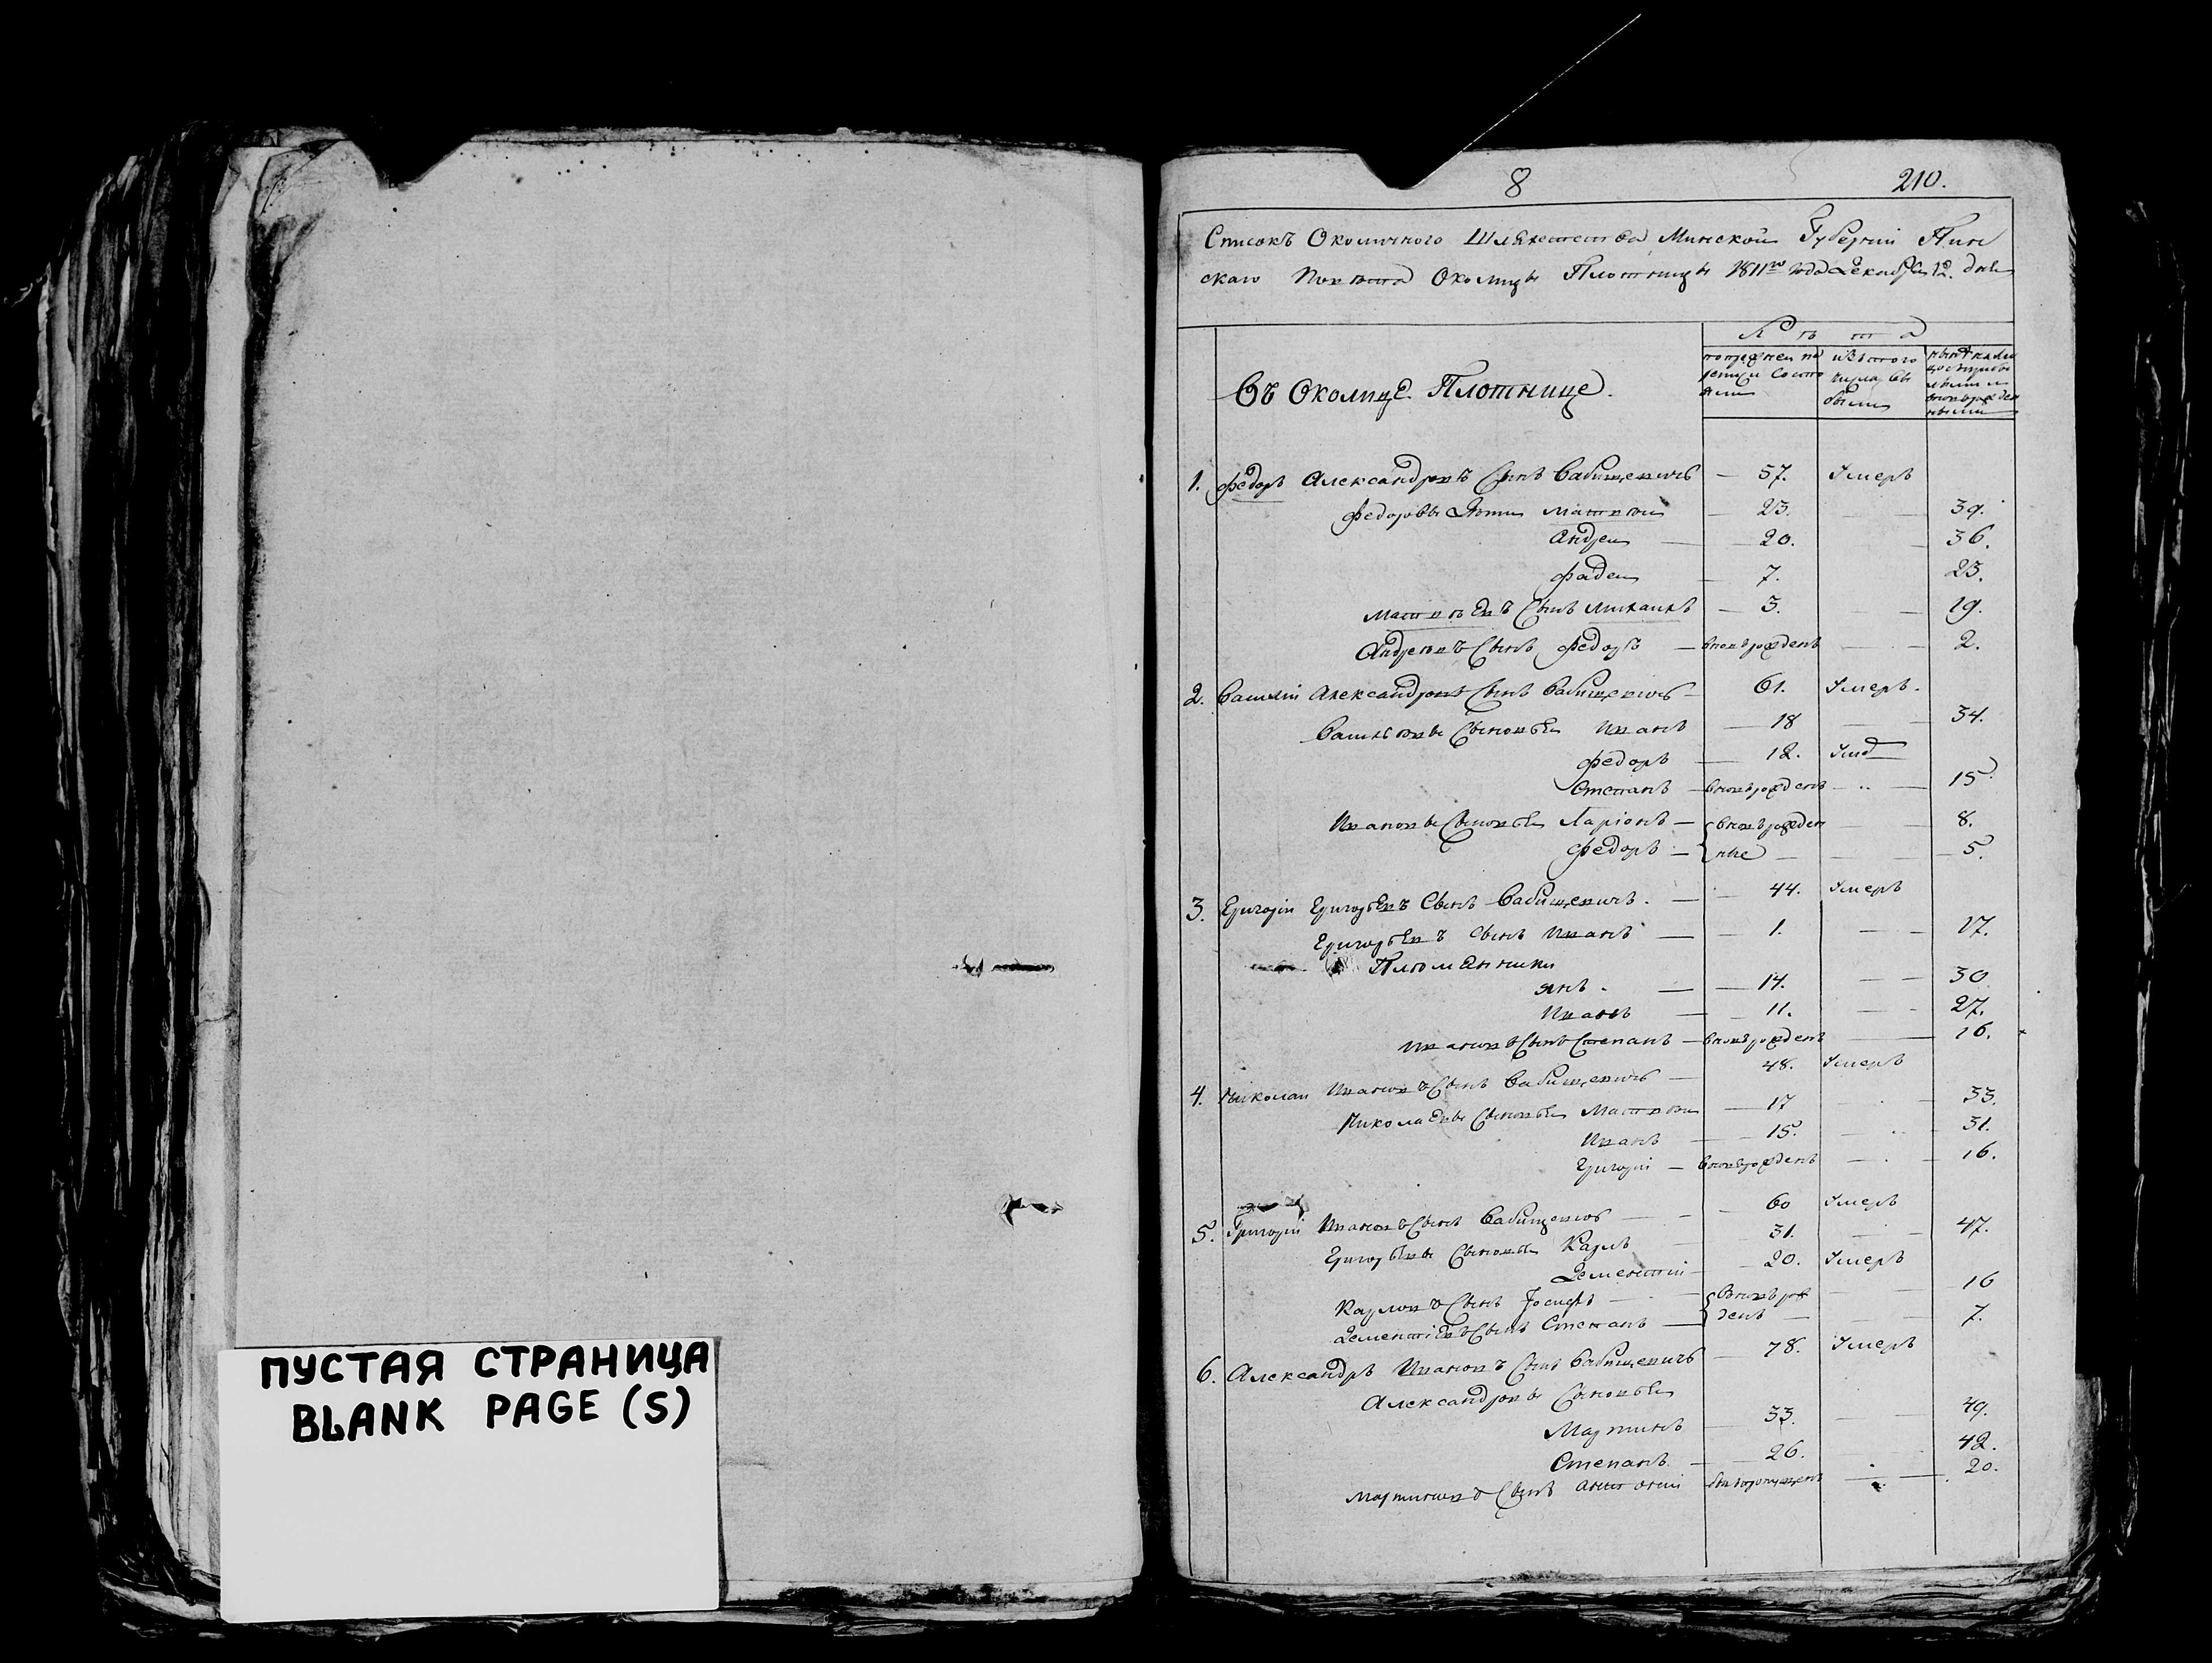 ПУСТАЯ СТРАНИЦА
BLANK PAGE (S)
8 210.
Списокъ Околичного Шляхетства Минской Губерніи Пин
скаго Повѣта Околицы Плотницы 1811го года Декабря 12. дня
Лѣта
Въ Околице Плотнице.
1. Федоръ Александровъ Сынъ Бабищевичъ — 57. Умеръ
Федоровы Дѣти Матвѣи — 23. — 39.
Андреи — 20. — 36.
Фадеи — 7. 23.
Матвѣевъ Сынъ Михаилъ — 3. — 19.
Андреевъ Сынъ Федоръ — вновьрожденъ — 2.
2. Василіи Александровъ Сынъ Бабищевичъ — 61. Умеръ.
Васильевы Сыновья Иванъ — 18 — 34.
Федоръ — 12. Умре
Степанъ — вновьрожденъ — 15
Ивановы Сыновья Ларіонъ — вновьрожден — 8.
Федоръ — ные — 5.
3. Григоріи Григорьевъ Сынъ Бабищевичъ. — 44. Умеръ
Григорьевъ Сынъ Иванъ — 1. — 17.
Племянники
Янъ. — 14. — 30
Иванъ — 11. — 27.
Ивановъ Сынъ Степанъ — вновьрожденъ — 16.
4. Николаи Ивановъ Сынъ Бабищевичъ — 48. Умеръ
Николаевы Сыновья Матвѣи — 17 — 33.
Иванъ — 15. — 31.
Григоріи — вновьрожденъ — 16.
5. Григоріи Ивановъ Сынъ Бабищевичъ — 60 Умеръ
Григорьевы Сыновья Карлъ 31. — 47.
Дементіи — 20. Умеръ
Карловъ Сынъ Іосифъ — вновьрож 16
Дементіевъ Сынъ Степанъ — денъ — 7.
6. Александръ Ивановъ Сынъ Бабищевичъ — 78. Умеръ
Александровы Сыновья
Мартинъ — 33. — 49.
Степанъ — 26. 42.
Мартиновъ Сынъ Антоніи былъ пропущенъ — 20.